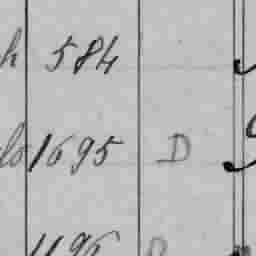 h 584
lo 1695 D
1196 D